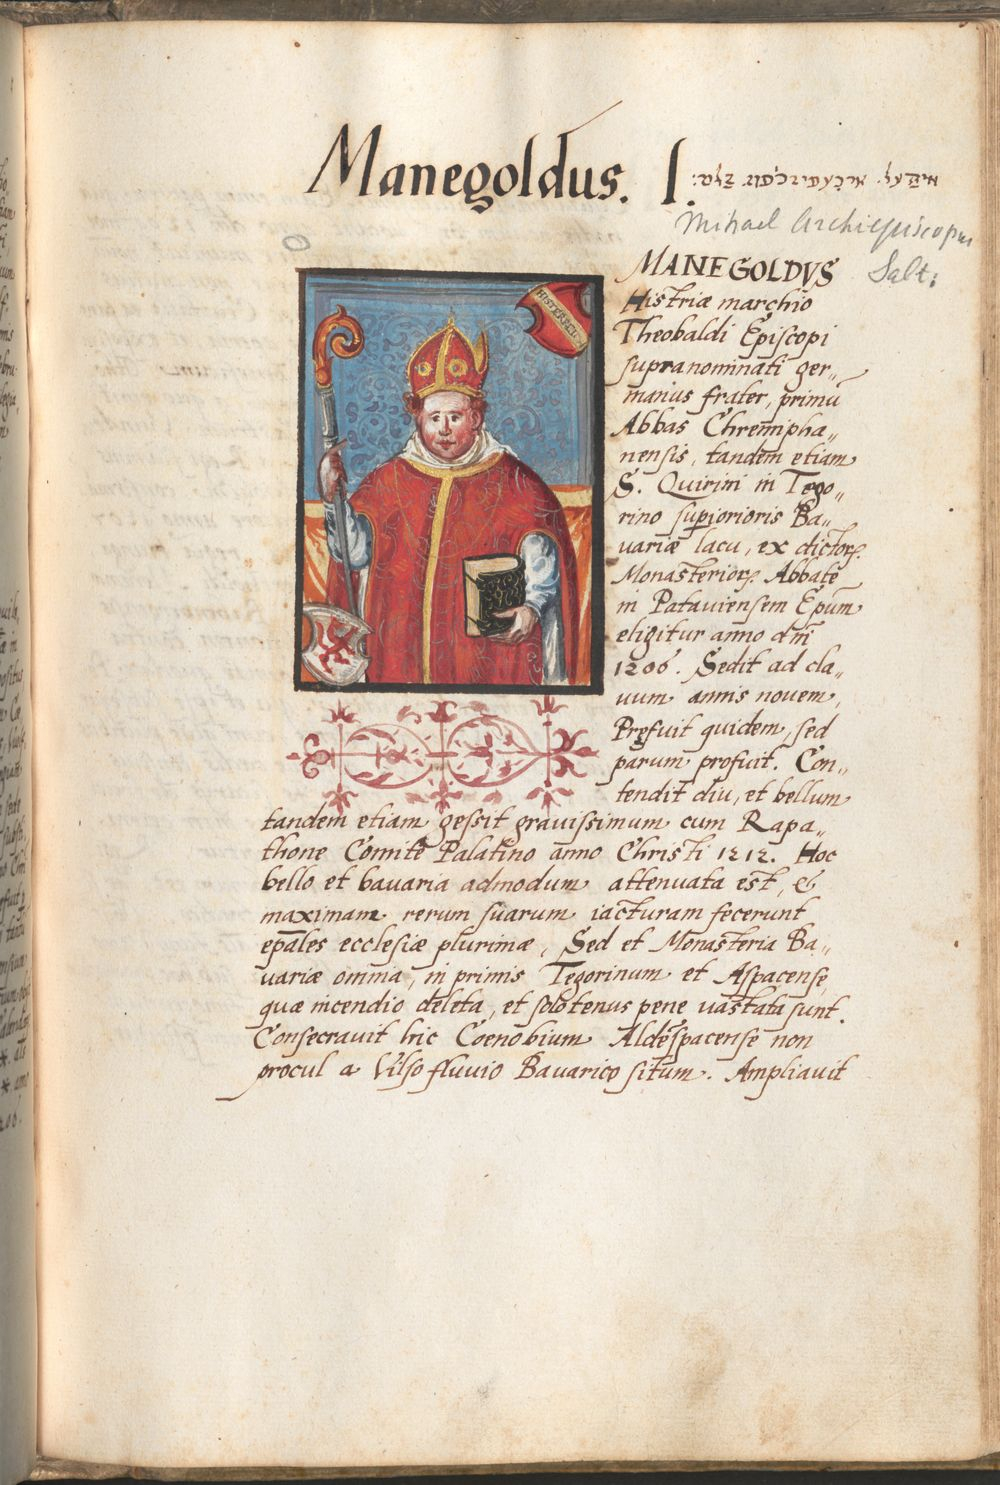 Manegoldus. I.
Mihael Archiepiscopus
Salt:
HISTERREICH
MANEGOLDVS
Histriæ marchio
Theobaldi Episcopi
supranominati ger„
manus frater, primū
Abbas Chrempha„
nensis, tandem etiam
S. Quirini in Tego„
rino superiorioris Ba„
variæ lacu, ex dictorꝝ
Monasteriorꝝ Abbate
in Pataviensem Epūm
eligitur anno dn̄i
1206. Sedit ad cla„
uum annis novem,
Pręfuit quidem, sed
parum profuit. Con„
tendit diu, et bellum
tandem etiam gessit gravissimum cum Rapa„
thone Comite Palatino anno Christi 1212. Hoc
bello et bavaria admodum attenuata est, &
maximam rerum suarum iacturam fecerunt
ep̄ales ecclesiæ plurimæ, Sed et Monasteria Ba„
variæ omnia, in primis Tegorinum et Aspacense,
quæ incendio deleta, et solo tenus pene vastata sunt.
Consecravit hic Coenobium Alderspacense non
procul a Vilso fluvio Bavarico situm. Ampliavit